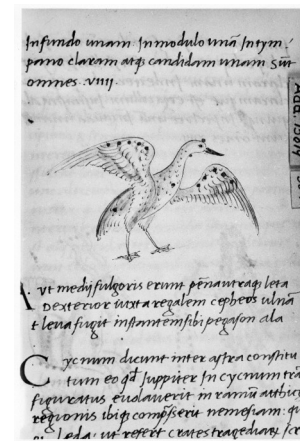 Infundo unam. In modulo unā In tym
pano claram atq; candidam unam sūt
omnes. viiii.
vt medij fulgoris erunt pēna utraq; leta
Dexterior iuxta regalem cepheos ulnā
t leua fugit instantem sibi pegason ala
Cycnum dicunt inter astra constitu
tum eo qd Iuppiter In cycnum trā
figuratus euolauerit in
regionis ibiq; compsserit nemesiam: q
leda: ut refert crates tragediarx scr